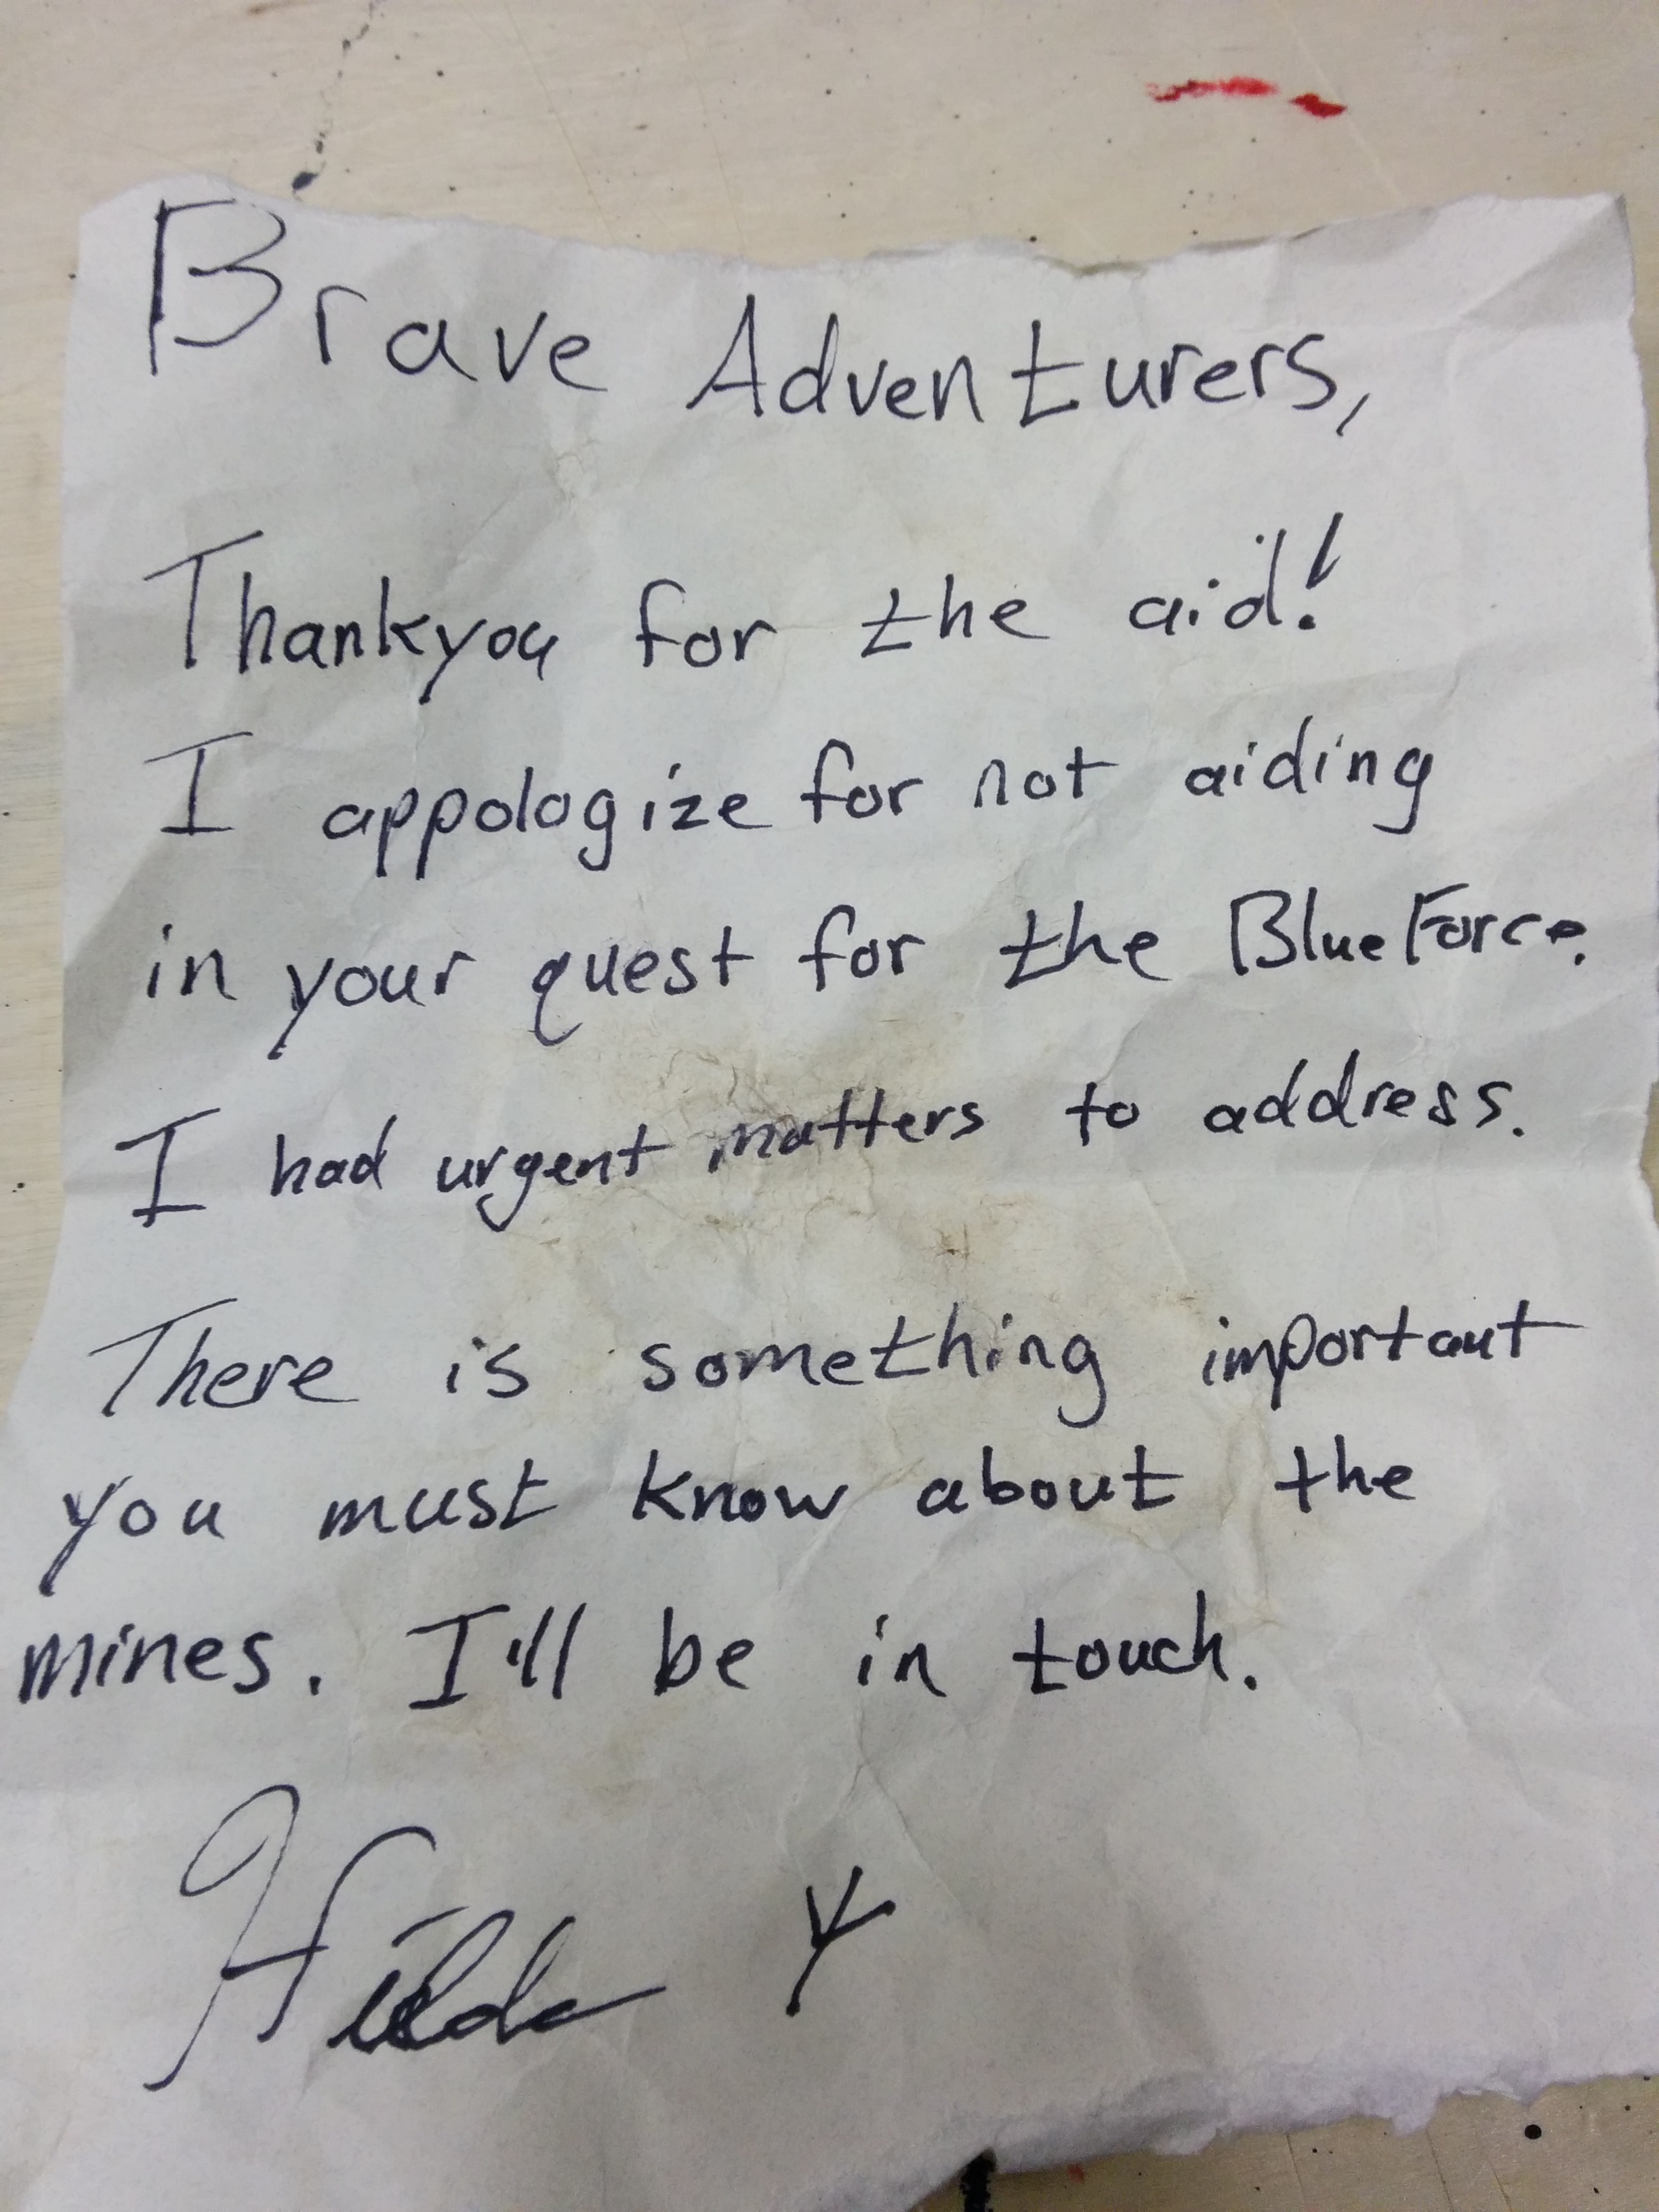 Brave Adventurers,
Thankyou for the aid!
I appologize for not aiding
in your quest for the Blue Force.
I had urgent matters to address.
There is something important
you must know about the
mines. I'll be in touch.
Hilda